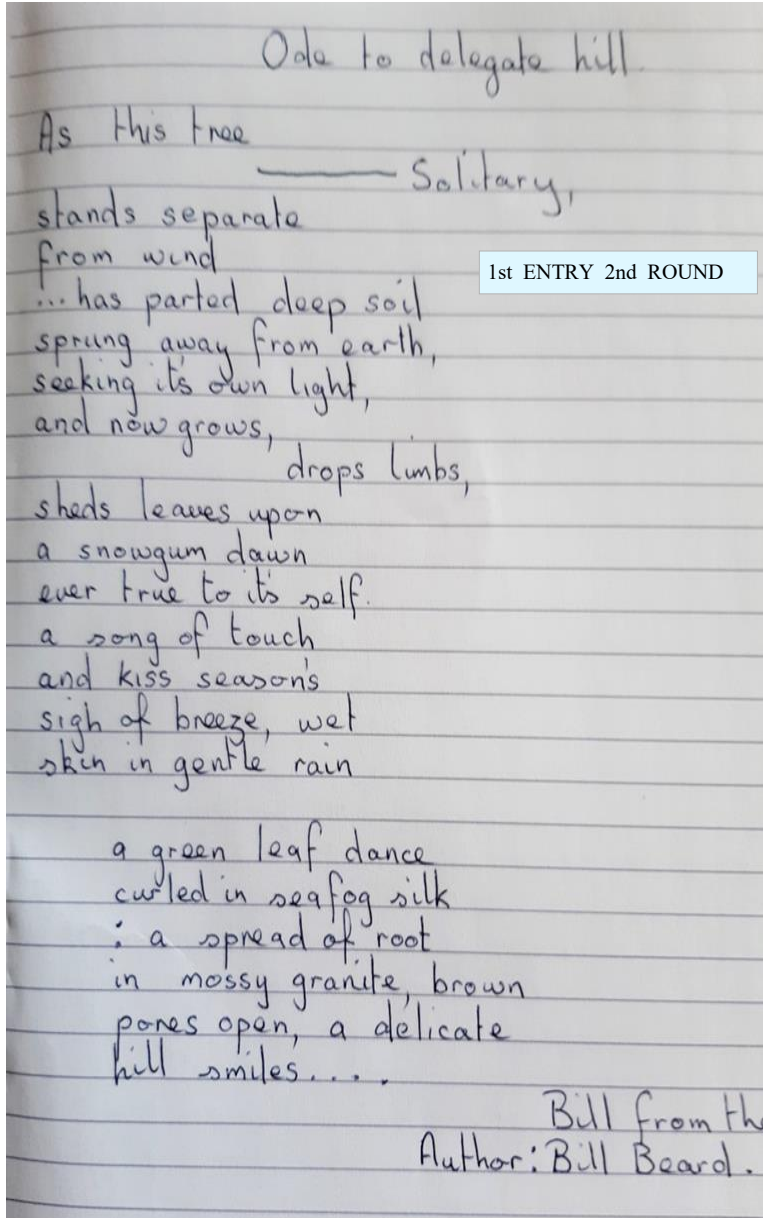 Ode to delegate hill.
As this tree
——— Solitary,
stands separate
from wind
1st ENTRY 2nd ROUND
...has parted deep soil
sprung away from earth,
seeking it's own light,
and now grows,
drops limbs,
sheds leaves upon
a snowgum dawn
ever true to it's self.
a song of touch
and kiss season's
sigh of breeze, wet
skin in gentle rain
a green leaf dance
curled in seafog silk
: a spread of root
in mossy granite, brown
pores open, a delicate
hill smiles....
Bill from the
Author: Bill Beard.